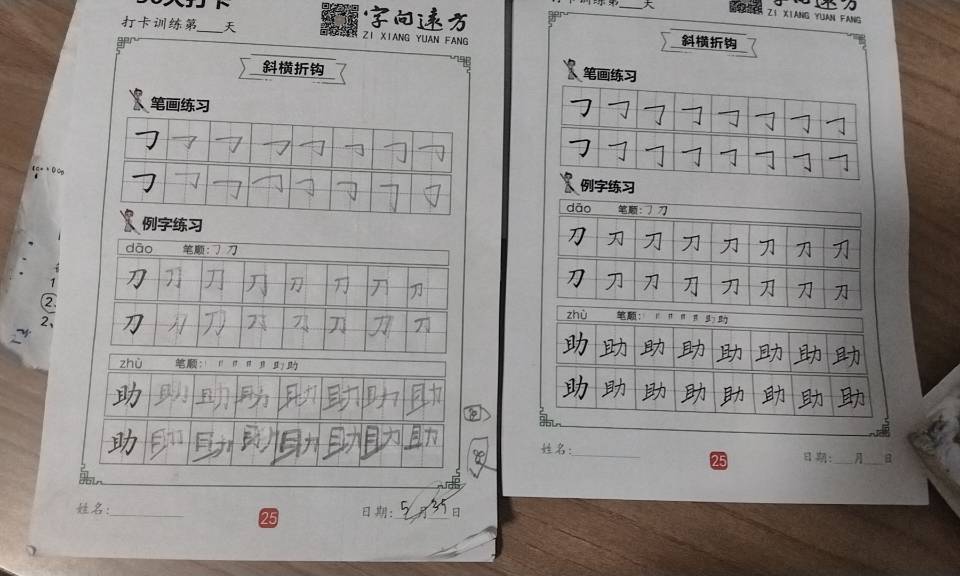 打卡训练第___天
字向远方
ZI XIANG YUAN FANG
斜横折钩
笔画练习
例字练习
dāo 笔顺:㇆刀
刀 刀 刀 刀 刀 刀 刀 刀
刀 刀 刀 刀 刀 刀 刀 刀
zhù 笔顺: 助
助 助 助 助 助 助 助 助
助 助 助 助 助 助 助 助
姓名:
25
日期: 5 月 35 日
打卡训练第___天
字向远方
ZI XIANG YUAN FANG
斜横折钩
笔画练习
例字练习
dāo 笔顺:㇆刀
刀 刀 刀 刀 刀 刀 刀 刀
刀 刀 刀 刀 刀 刀 刀 刀
zhù 笔顺: 助
助 助 助 助 助 助 助 助
助 助 助 助 助 助 助 助
姓名:
25
日期:___月___日